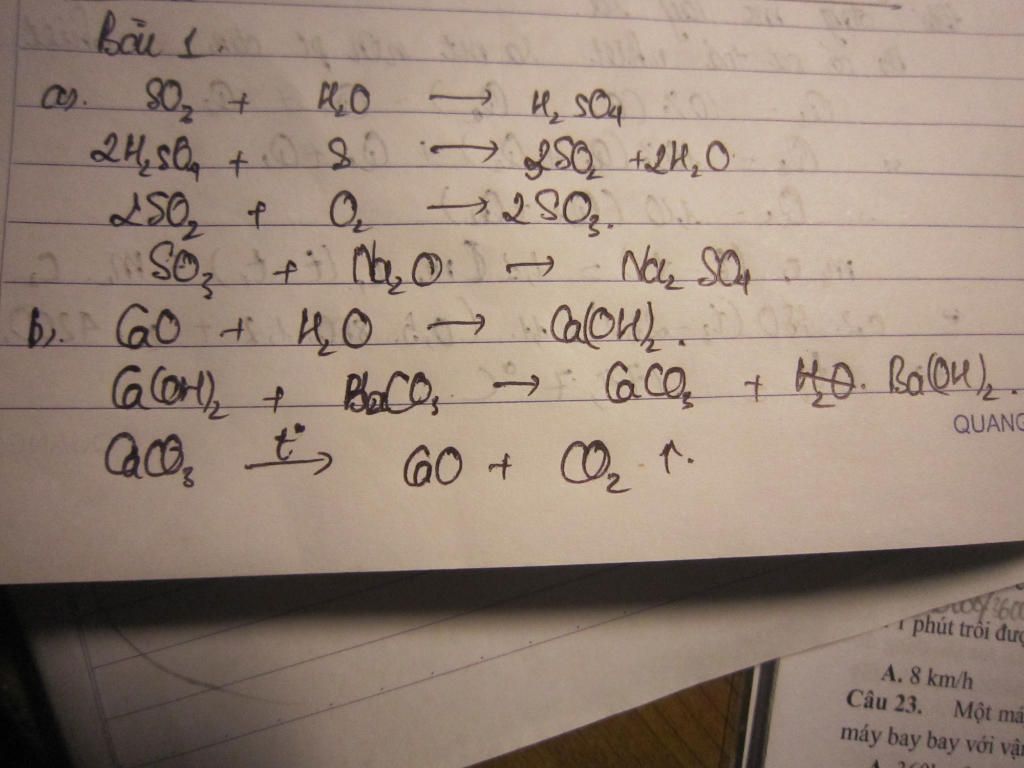 Bài 1.
a). SO₂ + H₂O → H₂SO₄
2H₂SO₄ + S → 3SO₂ + 2H₂O
2SO₂ + O₂ → 2SO₃.
SO₃ + Na₂O → Na₂SO₄
b). CaO + H₂O → Ca(OH)₂.
Ca(OH)₂ + BaCO₃ → CaCO₃ + H₂O. Ba(OH)₂.
QUANG
CaCO₃ t° → CaO + CO₂ ↑.
1 phút trôi đượ
A. 8 km/h
Câu 23. Một má
máy bay bay với vận